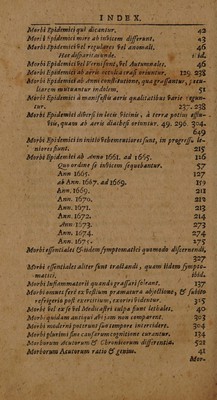 INDEX.
Morbi Epidemici qui dicantur. 42
Morbi Epidemici more ab inbicem differunt. 43
Morbi Epidemici bel regulares bel anomali. 46
Hoc disparitionde. ibid.
Morbi Epidemici bel Verni sunt, bel Autumnales. 46
Morbi Epidemici ab aeris occulta crasi oriuntur. 129. 238
Morbi Epidemici ab Anni constitutione, qua grassantur, pecu-
liarem mutuantur indolem. 51
Morbi Epidemici à manifestis aeris qualitatibus barie regun-
tur. 237. 238
Morbi Epidemici dibersi in locis bicinis, à terra potius efflu-
biis, quam ab aeris diathesi oriuntur. 49. 296 304.
649
Morbi Epidemici in initiis behementiores sunt, in progressu le-
niores sunt. 215
Morbi Epidemici ab Anno 1661. ad 1665. 116
Quo ordine se inbicem sequebantur. 57
Ann. 1665. 127
ab Ann. 1667. ad 1669. 159
Ann. 1669. 211
Ann. 1670. 212
Ann. 1671. 213
Ann. 1672. 214
Ann. 1673. 273
Ann. 1674. 274
Ann. 1675. 175
Morbi essentiales & iidem symptomatici quomodo discernendi.
327
Morbi essentiales aliter sunt tractandi, quam iidem sympto-
matici. ibid.
Morbi Inflammatorii quando grassari soleant. 137
Morbi omnes fere ex bestium prœmatura abjectione, & subito
refrigerio post exercitium, exoriri bidentur. 315
Morbi bel ex se bel Medicastri culpa sunt lethales. 40
Morbi quidam antiqui abs jam non comparent. 303
Morbi moderni poterunt suo tempore intercidere. 304
Morbi plurimi suo causarum cognitione curantur. 134
Morborum Acutorum & Chronicorum differentia. 521
Morborum Acutorum ratio & genius. 41
Mor-